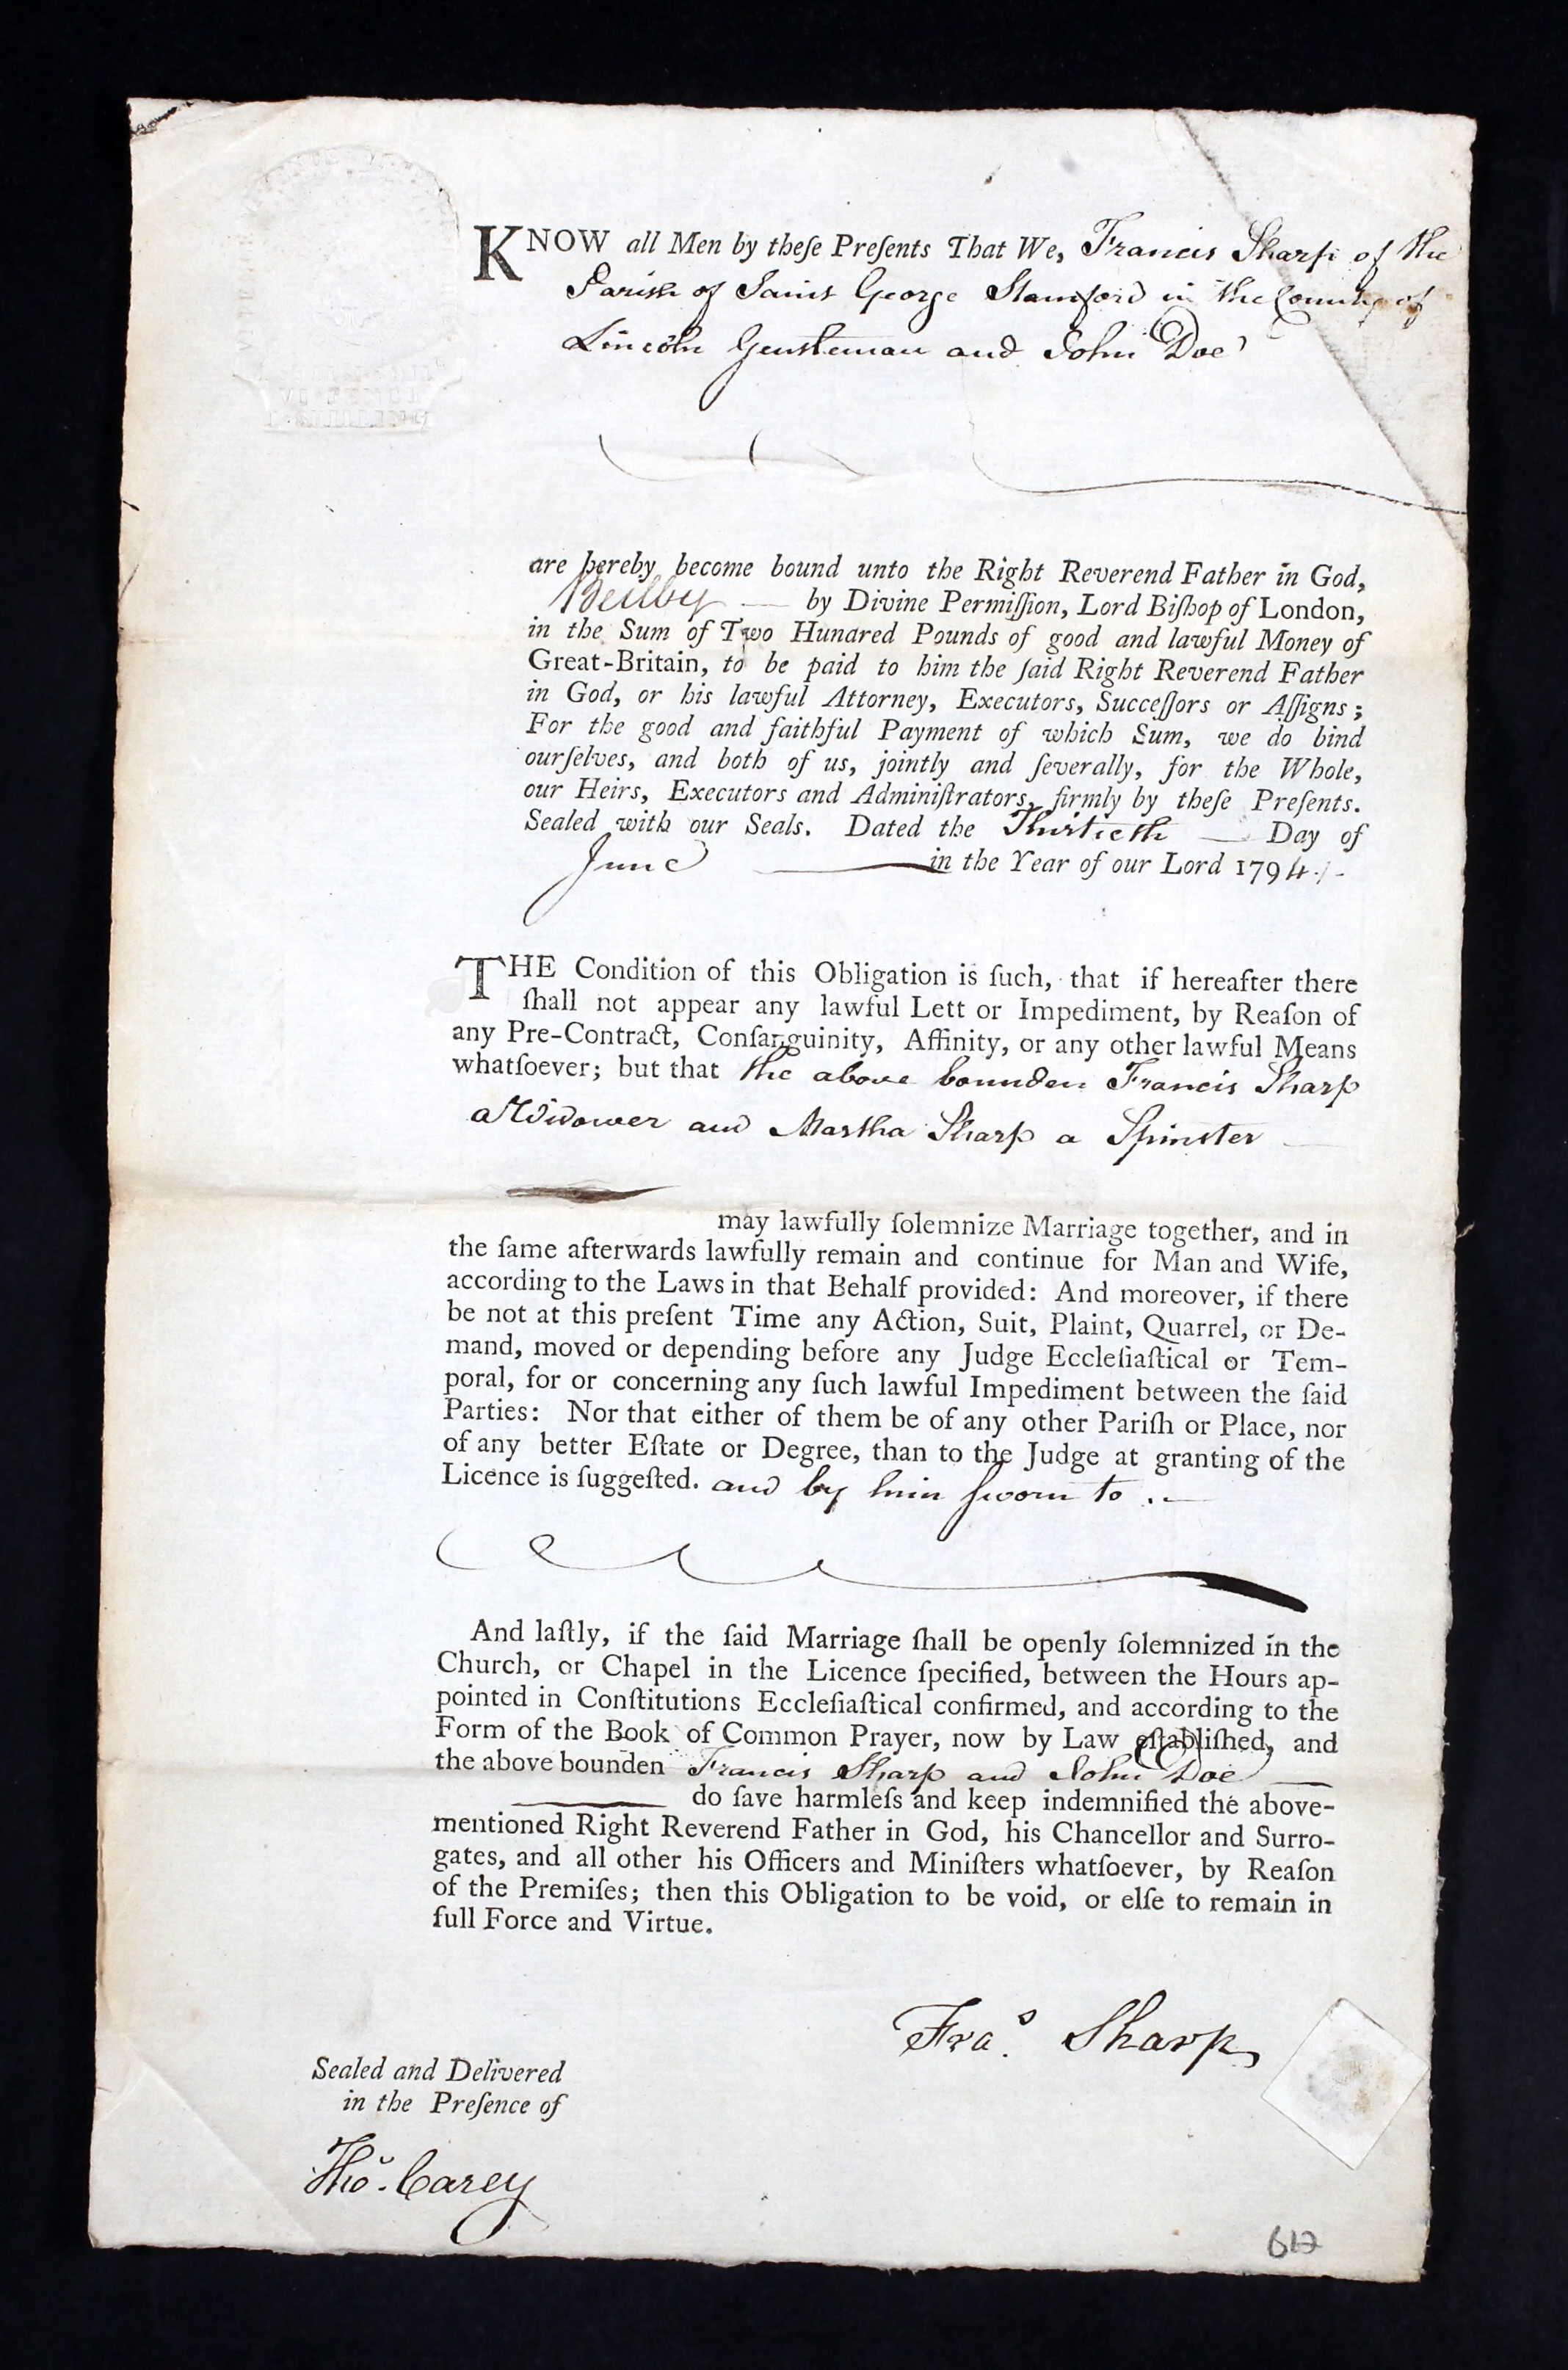 KNOW all Men by theſe Preſents That We, Francis Sharp of the
Parish of Saint George Stamford in the County of
Lincoln Gentleman and John Doe
are hereby become bound unto the Right Reverend Father in God,
Beilby — by Divine Permiſſion, Lord Biſhop of London,
in the Sum of Two Hundred Pounds of good and lawful Money of
Great-Britain, to be paid to him the ſaid Right Reverend Father
in God, or his lawful Attorney, Executors, Succeſſors or Aſſigns;
For the good and faithful Payment of which Sum, we do bind
ourſelves, and both of us, jointly and ſeverally, for the Whole,
our Heirs, Executors and Adminiſtrators, firmly by theſe Preſents.
Sealed with our Seals. Dated the Thirtieth — Day of
June — in the Year of our Lord 1794.
THE Condition of this Obligation is ſuch, that if hereafter there
ſhall not appear any lawful Lett or Impediment, by Reaſon of
any Pre-Contract, Conſanguinity, Affinity, or any other lawful Means
whatſoever; but that the above bounden Francis Sharp
a Widower and Martha Sharp a Spinster —
may lawfully ſolemnize Marriage together, and in
the ſame afterwards lawfully remain and continue for Man and Wife,
according to the Laws in that Behalf provided: And moreover, if there
be not at this preſent Time any Action, Suit, Plaint, Quarrel, or De-
mand, moved or depending before any Judge Eccleſiaſtical or Tem-
poral, for or concerning any ſuch lawful Impediment between the ſaid
Parties: Nor that either of them be of any other Pariſh or Place, nor
of any better Eſtate or Degree, than to the Judge at granting of the
Licence is ſuggeſted. and by him ſworn to .—
And laſtly, if the ſaid Marriage ſhall be openly ſolemnized in the
Church, or Chapel in the Licence ſpecified, between the Hours ap-
pointed in Conſtitutions Eccleſiaſtical confirmed, and according to the
Form of the Book of Common Prayer, now by Law eſtabliſhed, and
the above bounden Francis Sharp and John Doe —
do ſave harmleſs and keep indemnified the above-
mentioned Right Reverend Father in God, his Chancellor and Surro-
gates, and all other his Officers and Miniſters whatſoever, by Reaſon
of the Premiſes; then this Obligation to be void, or elſe to remain in
full Force and Virtue.
Fra.s Sharp
Sealed and Delivered
in the Preſence of
Tho.s Carey